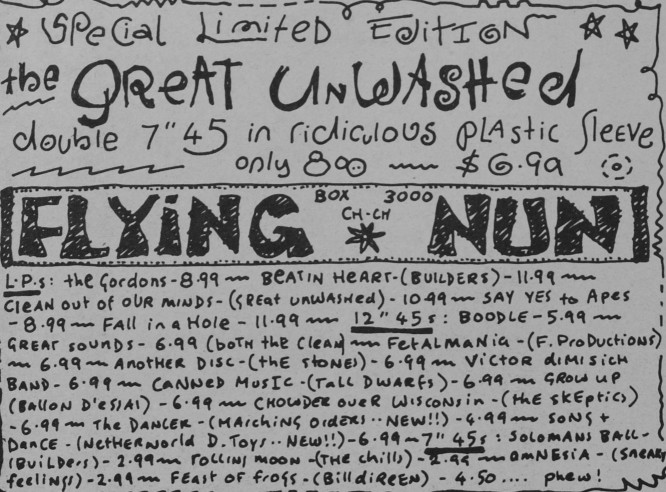 SPeCial LimiteD EDiTION
the GREAT UNWASHed
double 7" 45 in ridiculous PLAStic Sleeve
only 800 ~~ $6.99
FLYiNG BOX 3000 CH-CH NUN
L.P.s: the Gordons - 8.99 ~ BEATIN HEART - (BUILDERS) - 11.99 ~
CleAN out of OUR MINDS - (GREat UNWASHed) - 10.99 ~ SAY YES to Apes
- 8.99 ~ FALL in a Hole - 11.99 ~ 12" 45s: BOODLE - 5.99 ~
GREAT SOUNDS - 6.99 (both the Clean) ~ FetALMANiA - (F. ProDuctions)
~ 6.99 ~ ANotHER DISC - (thE StONES) - 6.99 ~ VICTOR diMISICH
BAND - 6.99 ~ CANNED MUSIC - (TALL DWARFS) - 6.99 ~ GROW UP
(BAllON D'ESSAI) - 6.99 ~ CHOWDER OVER WISCONSIN - (tHE SKEPTICS)
- 6.99 ~ THe DANCER - (MARCHING ORDERS .. NEW!!) - 4.99 ~ SONG +
DANCE - (NETHERWORLD D. TOYS .. NEW!!) - 6.99 ~ 7" 45s: SOLOMANS BALL -
(BUiLDERS) - 2.99 ~ ROLLING MOON - (THE chills) - 2.99 ~ AMNESIA - (SNEAKY
feelings) - 2.99 ~ FEAST OF frogs - (BilldiREEN) - 4.50 .... phew!